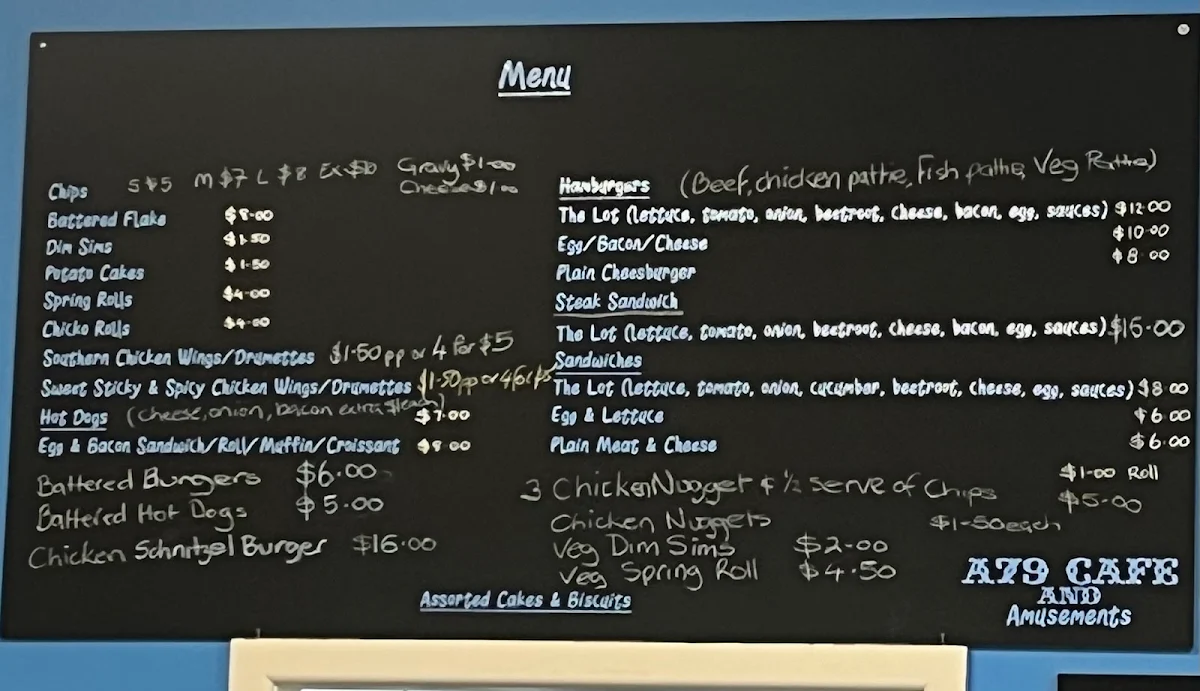 Menu
Chips S $5 M $7 L $8 Ex $10 Gravy $1.00
Cheese $1.00
Battered Flake $8.00
Dim Sims $1.50
Potato Cakes $1.50
Spring Rolls $4.00
Chicko Rolls $4.00
Southern Chicken Wings/Drumettes $1.50 pp or 4 for $5
Sweet Sticky & Spicy Chicken Wings/Drumettes $1.50pp or 4 for $5
Hot Dogs (cheese, onion, bacon extra $1 each) $7.00
Egg & Bacon Sandwich/Roll/Muffin/Croissant $8.00
Battered Burgers $6.00
Battered Hot Dogs $5.00
Chicken Schnitzel Burger $16.00
Hamburgers (Beef, chicken pattie, Fish pattie, Veg Pattie)
The Lot (lettuce, tomato, onion, beetroot, cheese, bacon, egg, sauces) $12.00
Egg/Bacon/Cheese $10.00
Plain Cheesburger $8.00
Steak Sandwich
The Lot (lettuce, tomato, onion, beetroot, cheese, bacon, egg, sauces) $16.00
Sandwiches
The Lot (lettuce, tomato, onion, cucumber, beetroot, cheese, egg, sauces) $8.00
Egg & Lettuce $6.00
Plain Meat & Cheese $6.00
$1.00 Roll
3 Chicken Nugget & ½ serve of Chips $5.00
Chicken Nuggets $1.50each
Veg Dim Sims $2.00
Veg Spring Roll $4.50
Assorted Cakes & Biscuits
A79 CAFE
AND
Amusements